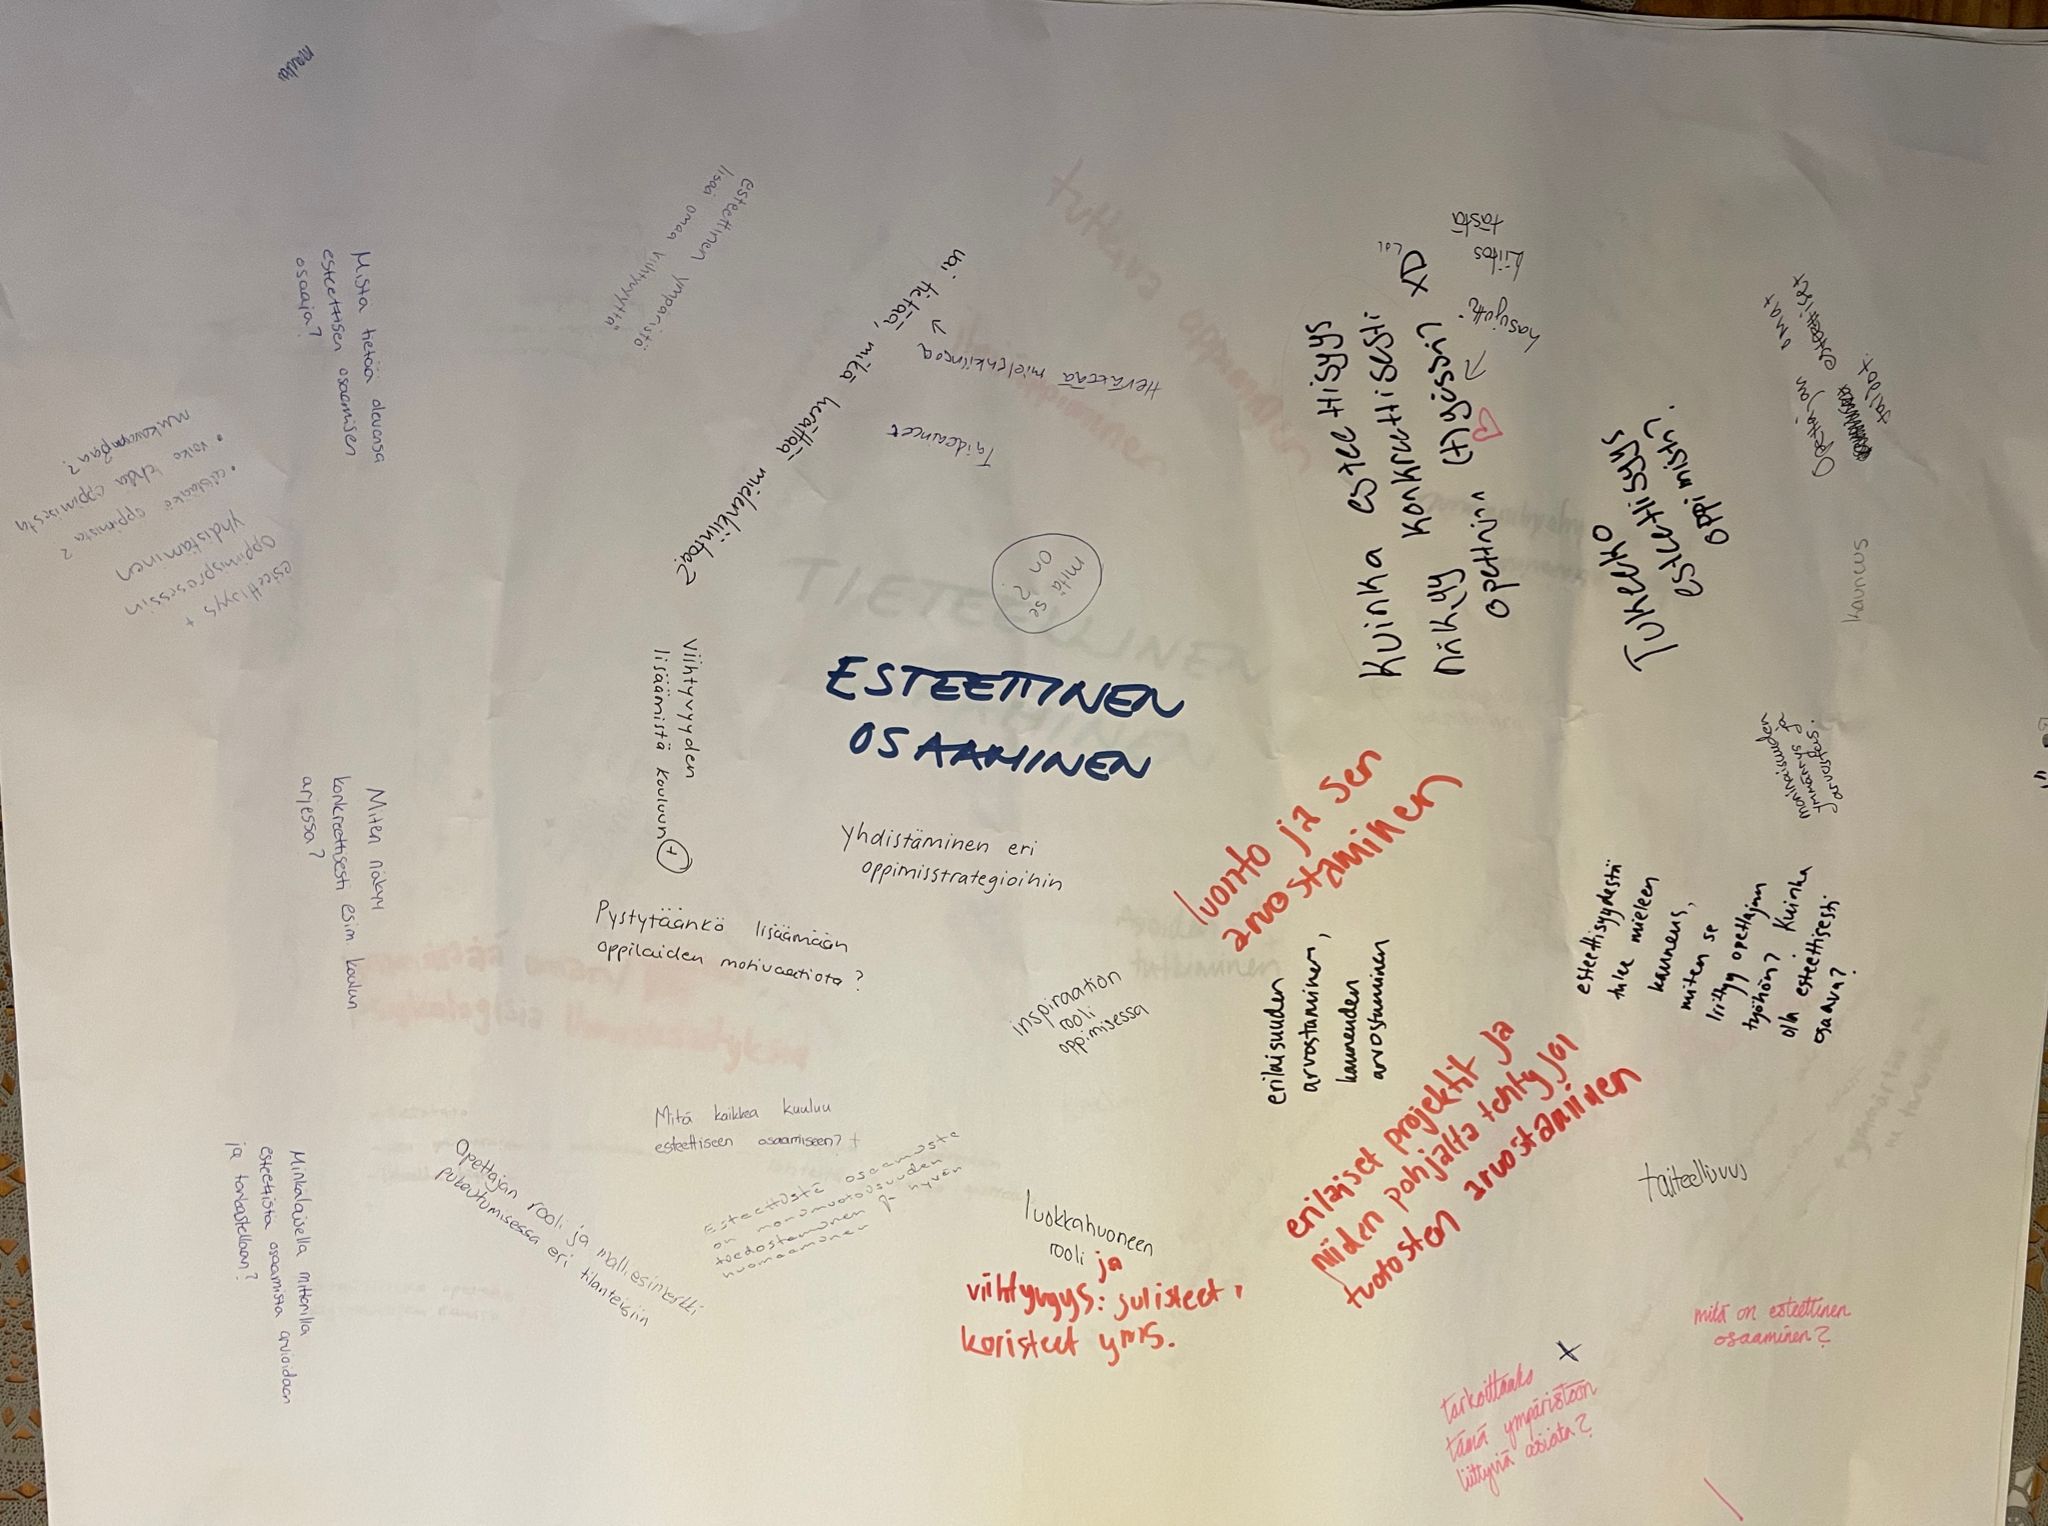 ESTEETTINEN
OSAAMINEN
esteettinen ympäristö
lisää omaa viihtyvyyttä
vai tietää, mikä herättää mielenkiintoa?
Herättää mielenkiintoa
Taideaineet
mitä se
on?
Kuinka esteettisyys
näkyy konkreettisesti
opettajan (t)yössä? XD
LOL
hasujutti
kiitos
tästä
Tukeeko
esteettisyys
oppimista?
Opettajan omat
esteettiset
taidot.
kauneus
moninaisuuden
ymmärrys ja
arvostus.
Mistä tietää olevansa
esteettisen osaamisen
osaaja?
esteettisyys +
oppimisprosessin
yhdistäminen
• oppimista?
• voiko tehdä oppimisesta
mukavampaa?
Viihtyvyyden
lisäämistä kouluun +
yhdistäminen eri
oppimisstrategioihin
luonto ja sen
arvostaminen
Miten näkyy
konkreettisesti esim. koulun
arjessa?
Pystytäänkö lisäämään
oppilaiden motivaatiota?
inspiraation
rooli
oppimisessa
erilaisuuden
arvostaminen,
kauneuden
arvostaminen
esteettisyydestä
tulee mieleen
kauneus,
miten se
liittyy opettajan
työhön? Kuinka
olla esteettisesti
osaava?
Mitä kaikkea kuuluu
esteettiseen osaamiseen? +
Minkälaisella mittarilla
esteettistä osaamista arvioidaan
ja tarkastellaan?
Opettajan rooli ja malliesimerkki
pukeutumisessa eri tilanteisiin
Esteettistä osaamista
on monimuotoisuuden
tiedostaminen ja hyvän
huomaaminen
luokkahuoneen
rooli ja
viihtyvyys: julisteet,
koristeet yms.
erilaiset projektit ja
niiden pohjalta tehtyjä
tuotosten arvostaminen
taiteellisuus
mitä on esteettinen
osaaminen?
X
tarkoittaako
tämä ympäristöön
liittyviä asioita?